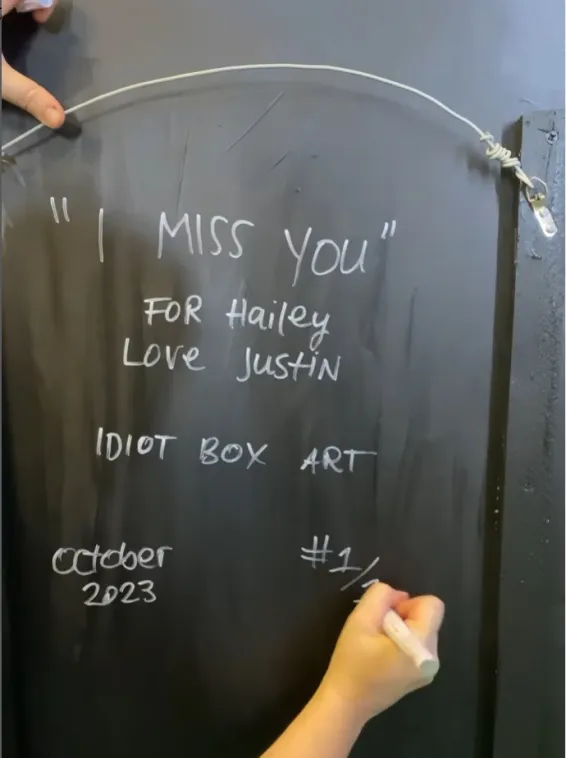 "I MISS YOU"
FOR Hailey
Love Justin
IDIOT BOX ART
October
2023
#1/